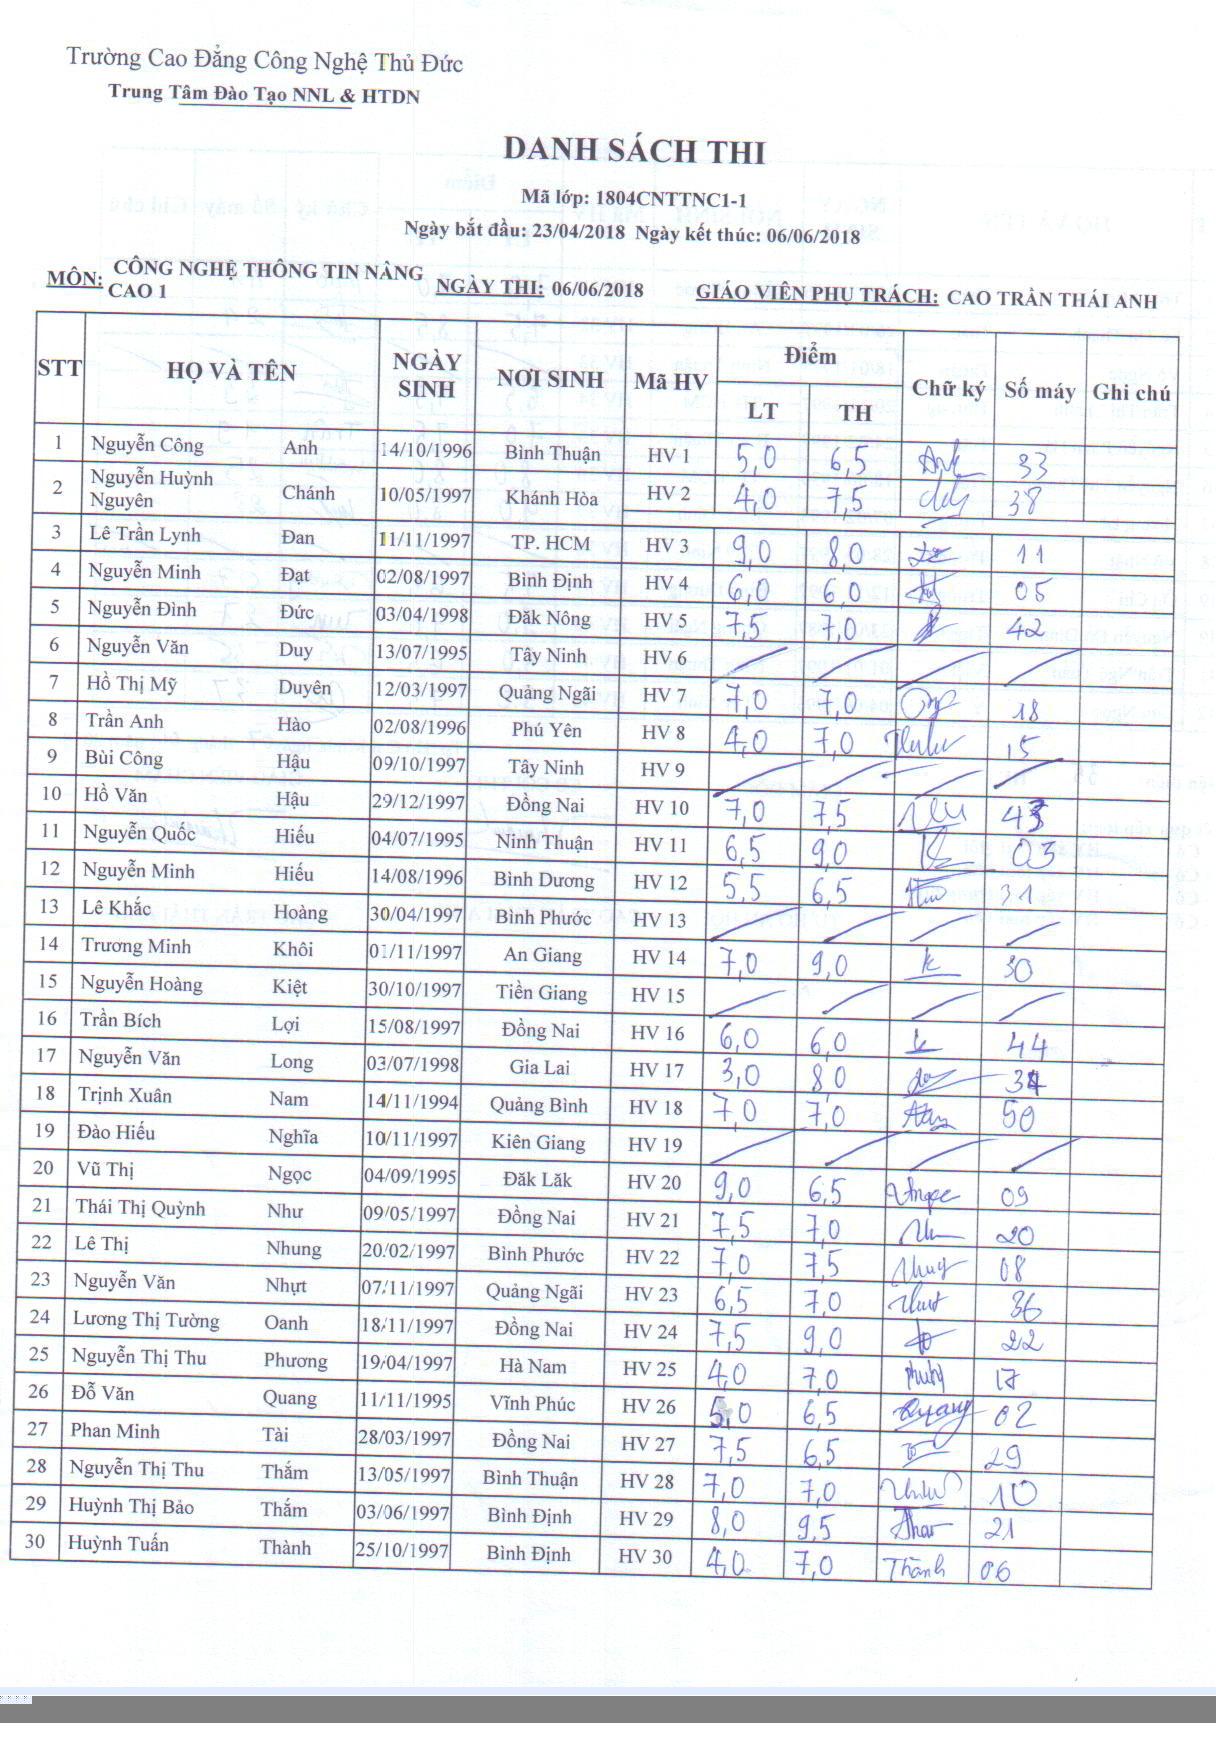 Trường Cao Đẳng Công Nghệ Thủ Đức
Trung Tâm Đào Tạo NNL & HTDN
DANH SÁCH THI
Mã lớp: 1804CNTTNC1-1
Ngày bắt đầu: 23/04/2018 Ngày kết thúc: 06/06/2018
MÔN: CÔNG NGHỆ THÔNG TIN NÂNG CAO 1 NGÀY THI: 06/06/2018 GIÁO VIÊN PHỤ TRÁCH: CAO TRẦN THÁI ANH
STT HỌ VÀ TÊN NGÀY SINH NƠI SINH Mã HV Điểm Chữ ký Số máy Ghi chú
LT TH
1 Nguyễn Công Anh 14/10/1996 Bình Thuận HV 1 5,0 6,5 Anh 33
2 Nguyễn Huỳnh Nguyên Chánh 10/05/1997 Khánh Hòa HV 2 4,0 7,5 38
3 Lê Trần Lynh Đan 11/11/1997 TP. HCM HV 3 9,0 8,0 11
4 Nguyễn Minh Đạt 02/08/1997 Bình Định HV 4 6,0 6,0 05
5 Nguyễn Đình Đức 03/04/1998 Đăk Nông HV 5 7,5 7,0 42
6 Nguyễn Văn Duy 13/07/1995 Tây Ninh HV 6
7 Hồ Thị Mỹ Duyên 12/03/1997 Quảng Ngãi HV 7 7,0 7,0 18
8 Trần Anh Hào 02/08/1996 Phú Yên HV 8 4,0 7,0 15
9 Bùi Công Hậu 09/10/1997 Tây Ninh HV 9
10 Hồ Văn Hậu 29/12/1997 Đồng Nai HV 10 7,0 7,5
11 Nguyễn Quốc Hiếu 04/07/1995 Ninh Thuận HV 11 6,5 9,0 03
12 Nguyễn Minh Hiếu 14/08/1996 Bình Dương HV 12 5,5 6,5 31
13 Lê Khắc Hoàng 30/04/1997 Bình Phước HV 13
14 Trương Minh Khôi 01/11/1997 An Giang HV 14 7,0 9,0 30
15 Nguyễn Hoàng Kiệt 30/10/1997 Tiền Giang HV 15
16 Trần Bích Lợi 15/08/1997 Đồng Nai HV 16 6,0 6,0 44
17 Nguyễn Văn Long 03/07/1998 Gia Lai HV 17 3,0 8,0
18 Trịnh Xuân Nam 14/11/1994 Quảng Bình HV 18 7,0 7,0 50
19 Đào Hiếu Nghĩa 10/11/1997 Kiên Giang HV 19
20 Vũ Thị Ngọc 04/09/1995 Đăk Lăk HV 20 9,0 6,5 09
21 Thái Thị Quỳnh Như 09/05/1997 Đồng Nai HV 21 7,5 7,0 20
22 Lê Thị Nhung 20/02/1997 Bình Phước HV 22 7,0 7,5 08
23 Nguyễn Văn Nhựt 07/11/1997 Quảng Ngãi HV 23 6,5 7,0 36
24 Lương Thị Tường Oanh 18/11/1997 Đồng Nai HV 24 7,5 9,0 22
25 Nguyễn Thị Thu Phương 19/04/1997 Hà Nam HV 25 4,0 7,0 17
26 Đỗ Văn Quang 11/11/1995 Vĩnh Phúc HV 26 5,0 6,5 Quang 02
27 Phan Minh Tài 28/03/1997 Đồng Nai HV 27 7,5 6,5 29
28 Nguyễn Thị Thu Thắm 13/05/1997 Bình Thuận HV 28 7,0 7,0 10
29 Huỳnh Thị Bảo Thắm 03/06/1997 Bình Định HV 29 8,0 9,5 21
30 Huỳnh Tuấn Thành 25/10/1997 Bình Định HV 30 4,0 7,0 Thành 06